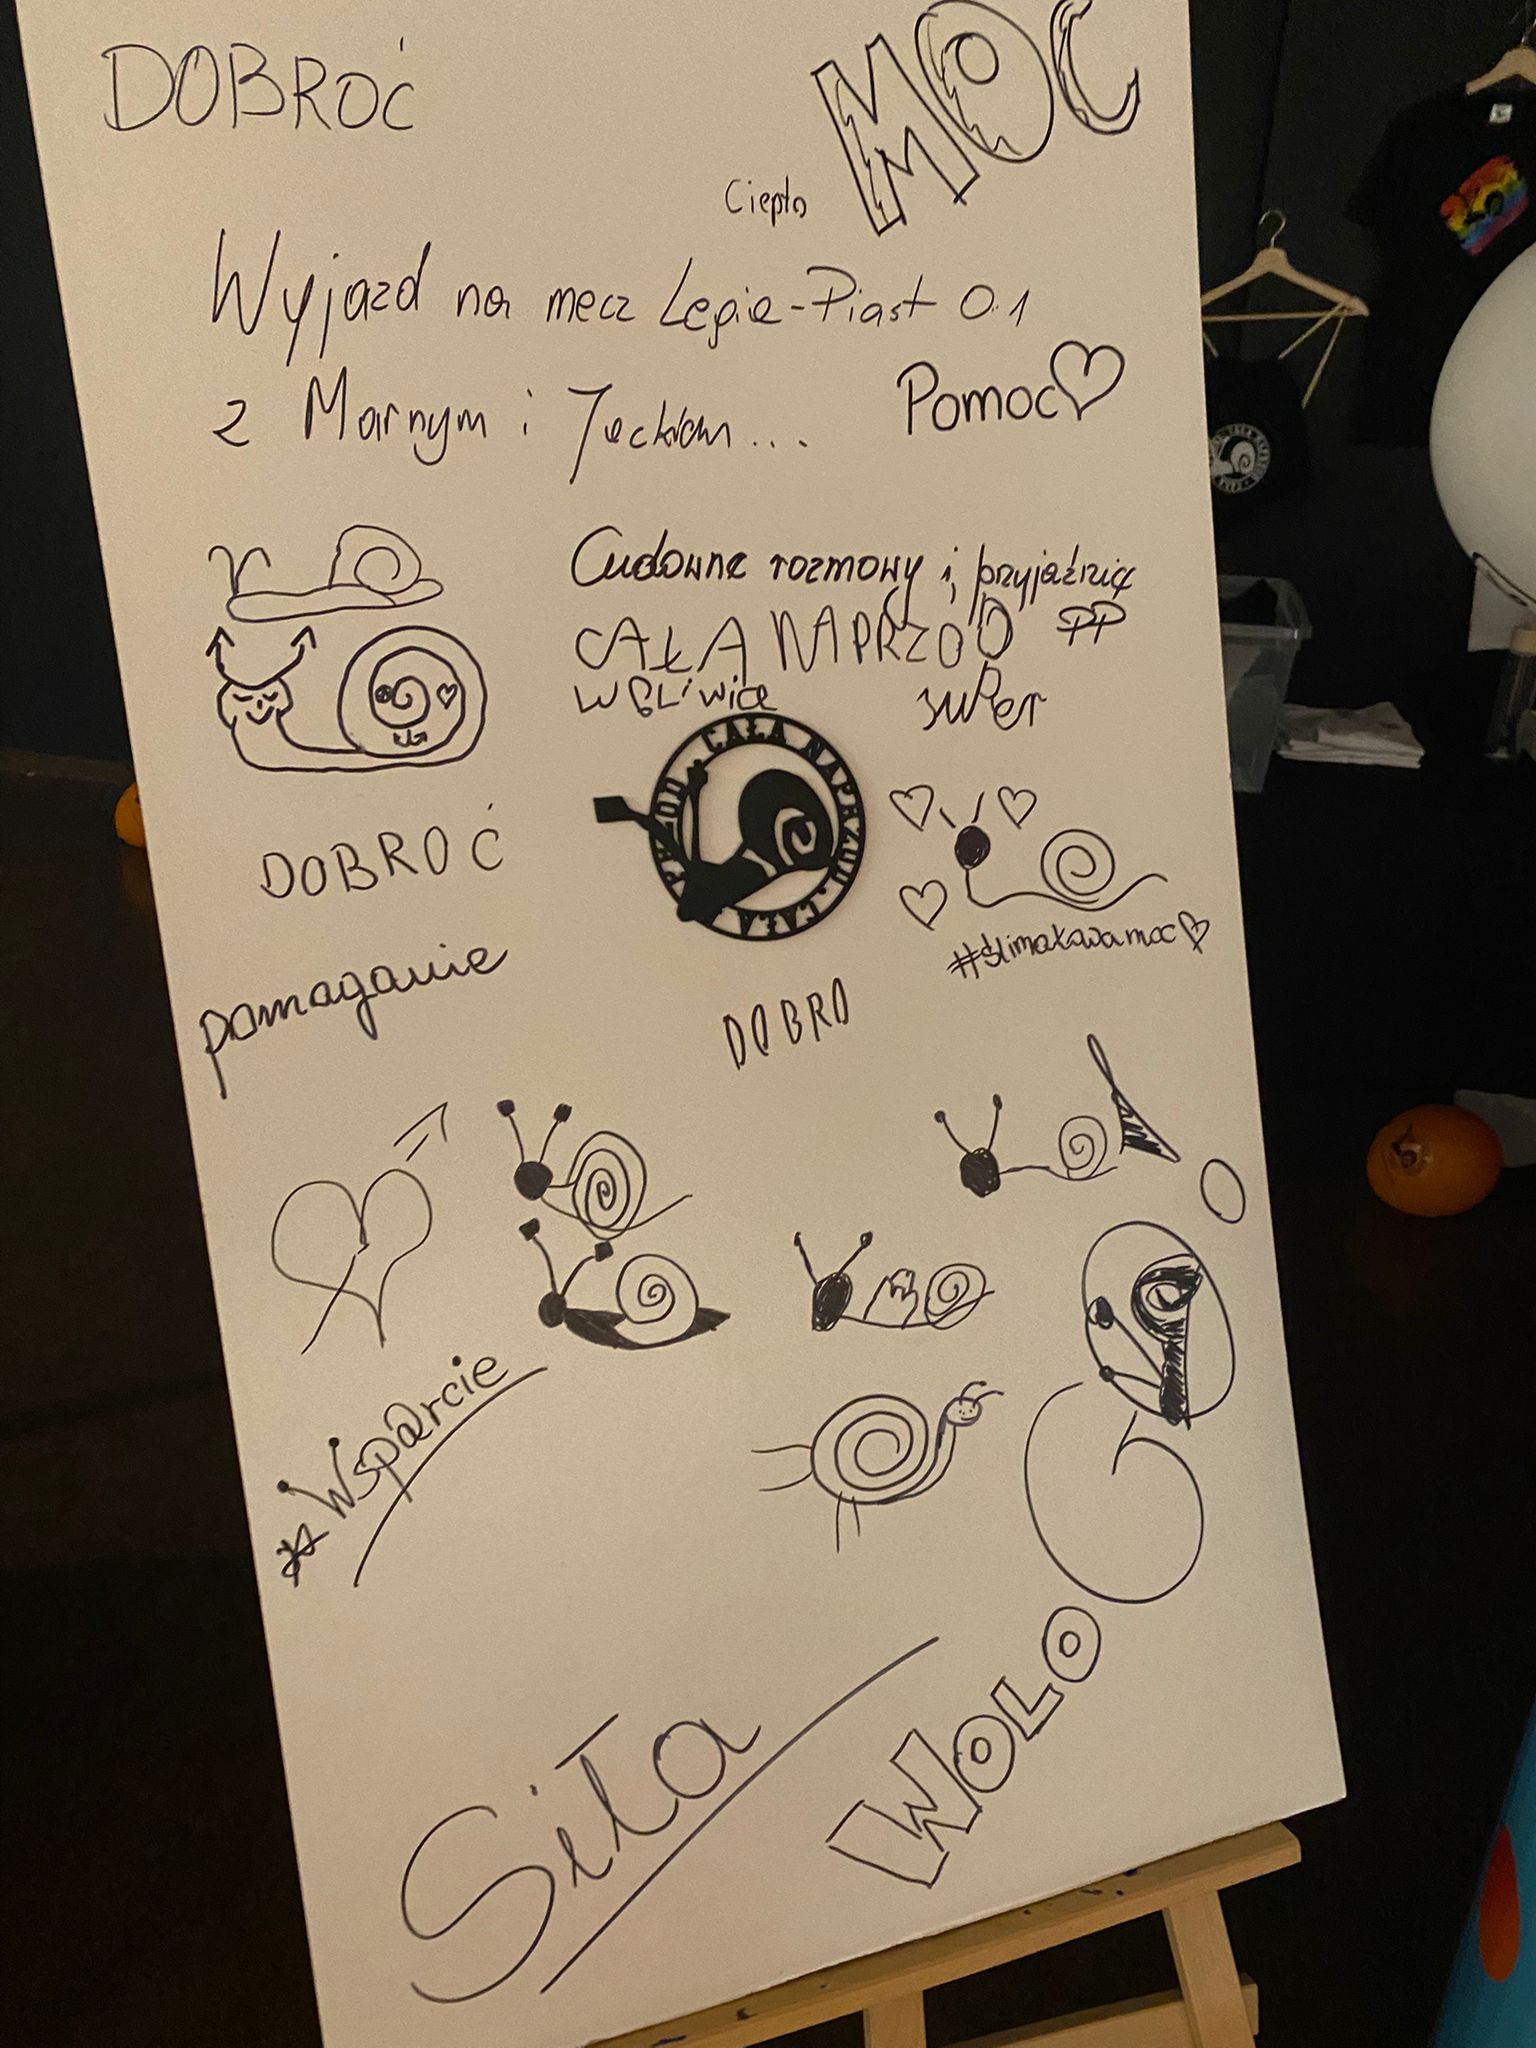 DOBROĆ
MOC
Ciepło
Wyjazd na mecz Legia-Piast 0:1
z Marnym i
Pomoc
Cudowne rozmowy i przyjaźnię
CAŁA NAPRZÓD PP
W GLiwice
SUPer
CAŁA NAPRZÓD. CAŁA NAPRZÓD
DOBROĆ
#ślimakowamoc
pomaganie
DOBRO
Wsparcie
Siła
WOLO